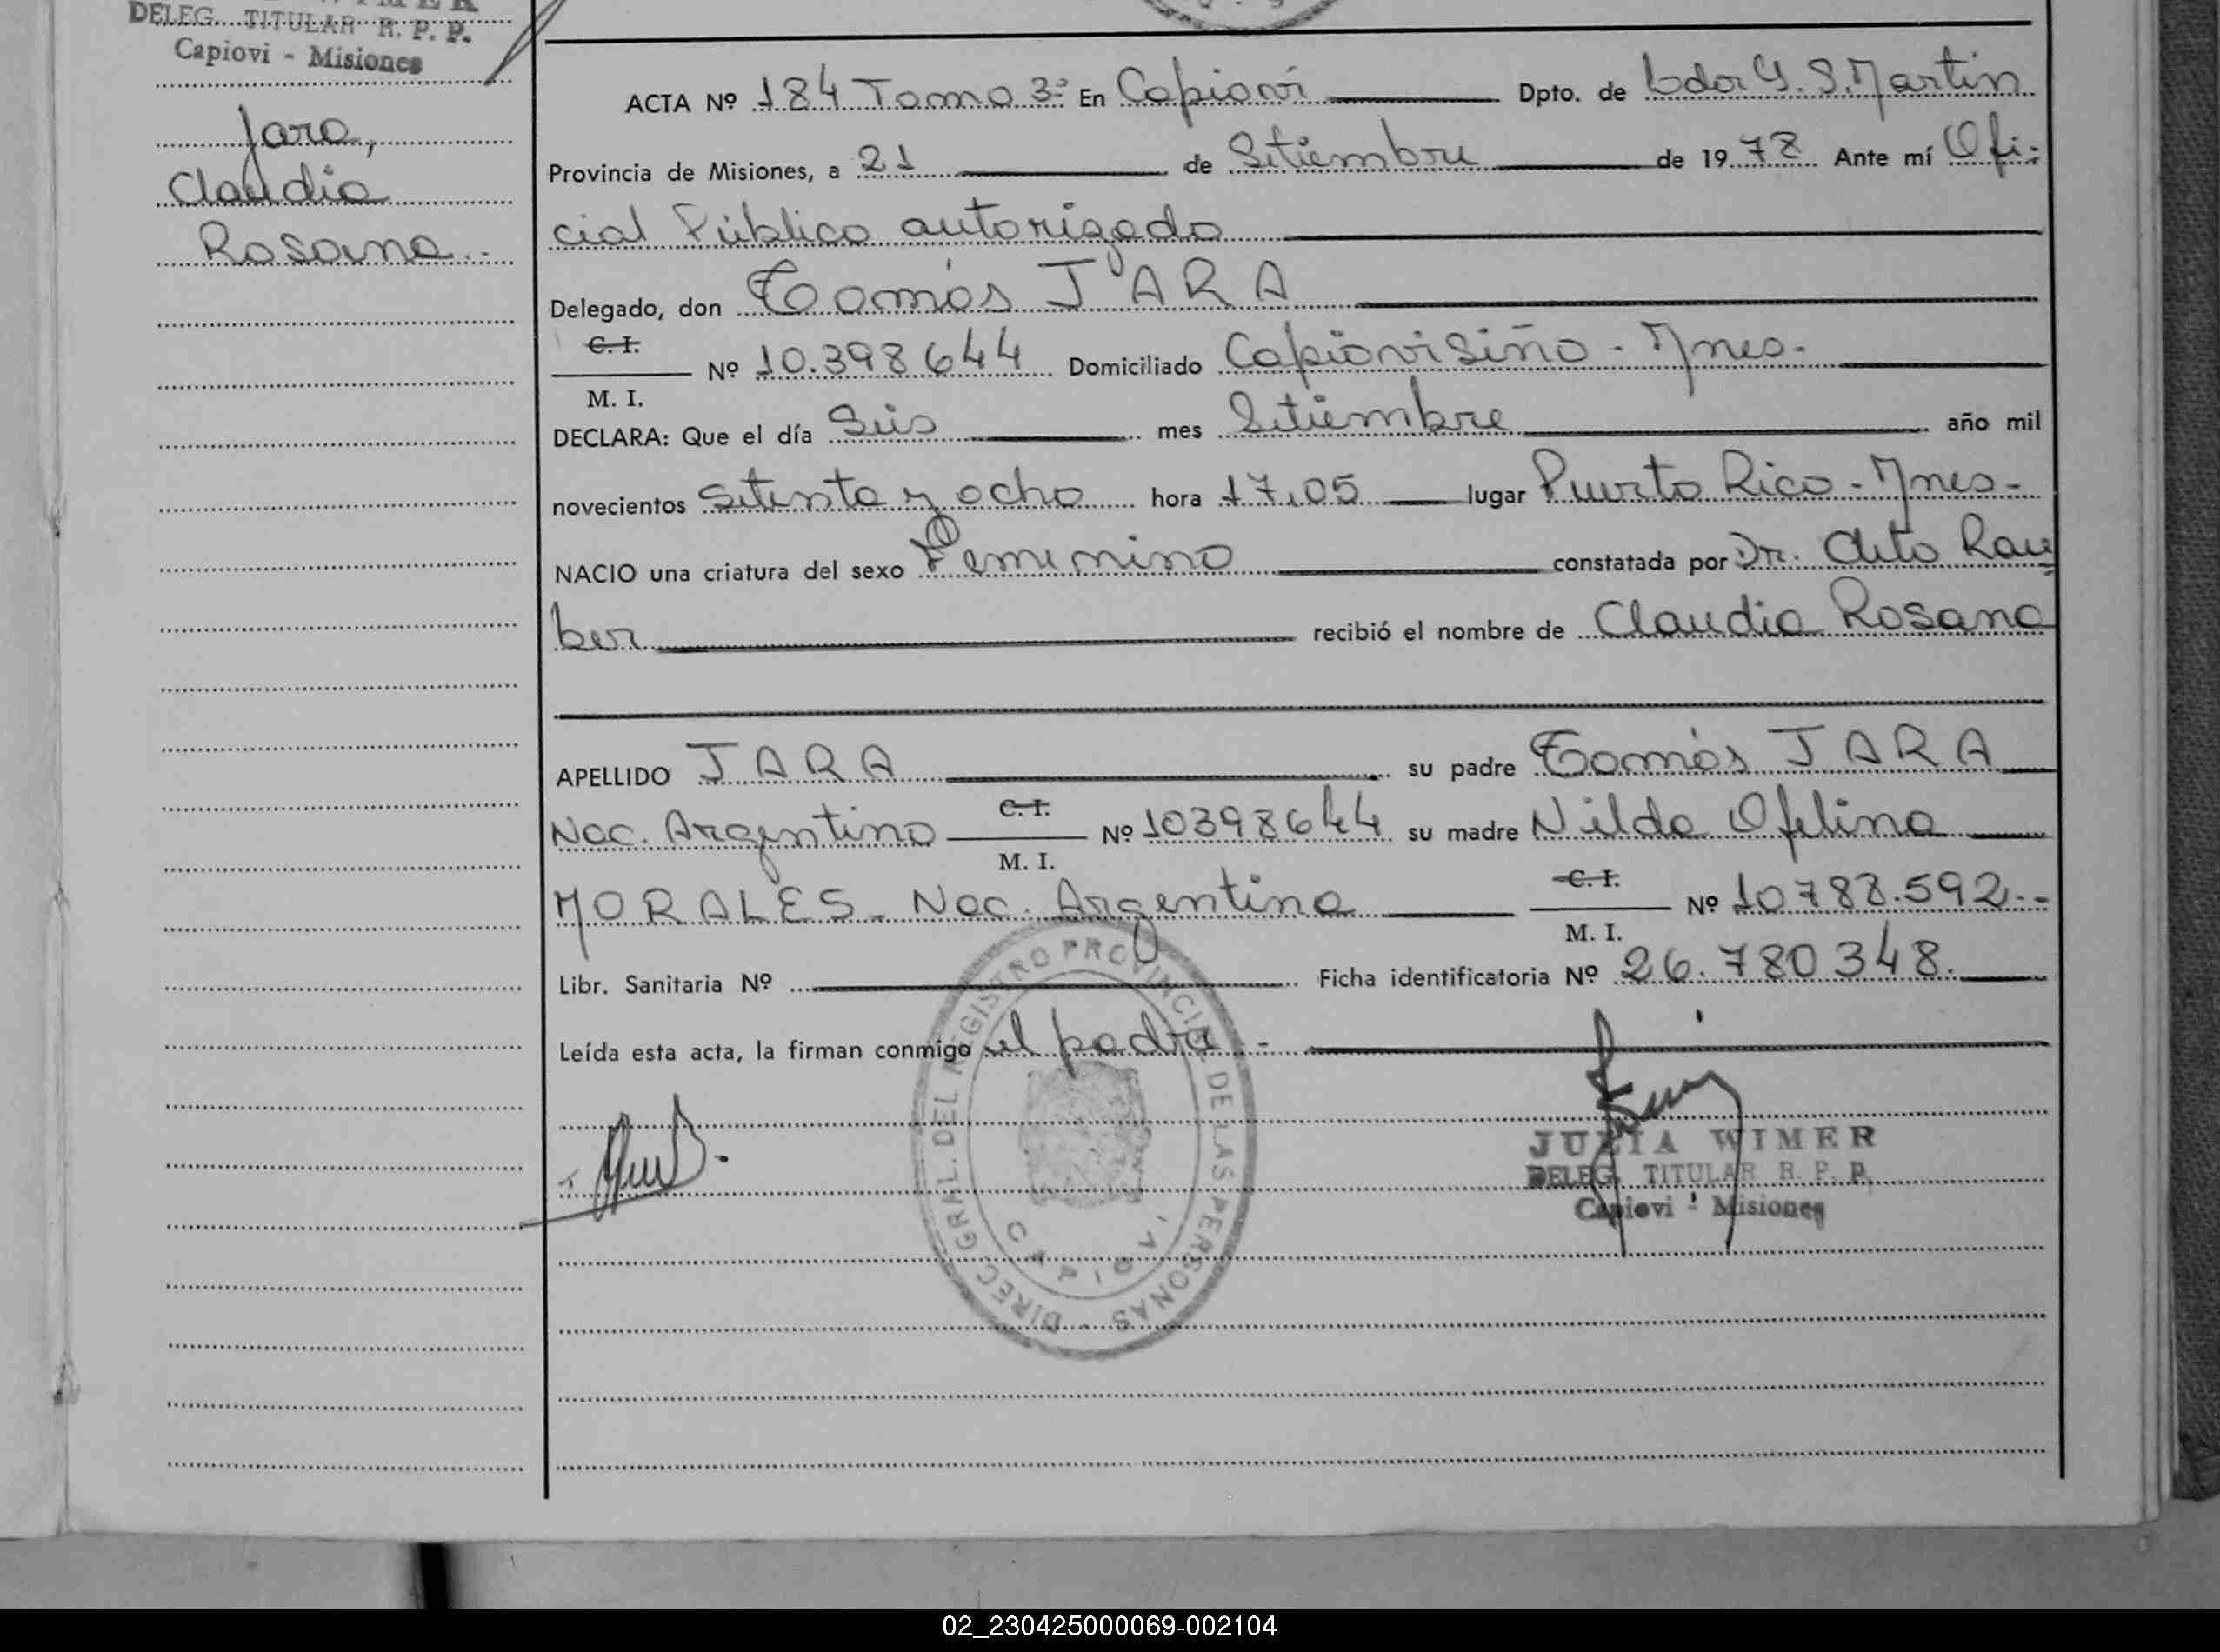 DELEG. TITULAR R. P. P.
Capiovi - Misiones
Jara,
Claudia
Rosana.-
ACTA Nº 184 Tomo 3º En Capioví Dpto. de Ldor G. S. Martin
Provincia de Misiones, a 21 de Setiembre de 1978 Ante mí Ofi-
cial Público autorizado
Delegado, don Tomás JARA
C. I.
M. I. Nº 10.398644 Domiciliado Capiovisiño - Mnes.
DECLARA: Que el día Seis mes Setiembre año mil
novecientos Setenta y ocho hora 17,05 lugar Puerto Rico - Mnes -
NACIO una criatura del sexo Femenino constatada por Dr. Cleto Rau
ber recibió el nombre de Claudia Rosana
APELLIDO JARA su padre Tomás JARA
Nac. Argentino C. I. M. I. Nº 10398644 su madre Nilda Ofelina
MORALES - Nac. Argentina C. I. M. I. Nº 10788.592.-
Libr. Sanitaria Nº Ficha identificatoria Nº 26.780348.
Leída esta acta, la firman conmigo el padre.-
DIREC. GRAL. DEL REGISTRO PROVINCIAL DE LAS PERSONAS
CAPIOVI
JULIA WIMER
DELEG. TITULAR R. P. P.
Capiovi - Misiones
02_230425000069-002104